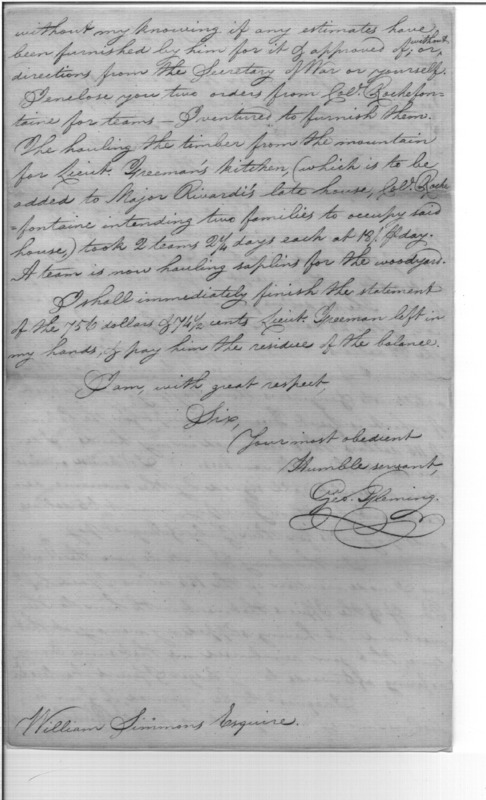 without my knowing if any estimates have
been furnished by him for it & approved of, or, without
directions from the Secretary of War or yourself.
I enclose you two orders from Colo. Rochefon-
taine for teams — I ventured to furnish them.
The hauling the timber from the mountain
for Lieut. Freeman's kitchen, (which is to be
added to Major Rivardi's late house, Colo. Roche
=fontaine intending two families to occupy said
house,) took 2 teams 2½ days each at 18/ ⅌ day.
A team is now hauling saplins for the woodyard.
I shall immediately finish the statement
of the 756 dollars & 74½ cents Lieut. Freeman left in
my hands, & pay him the residue of the balance.
I am, with great respect,
Sir,
Your most obedient
Humble servant,
Geo. Fleming.
William Simmons Esquire.